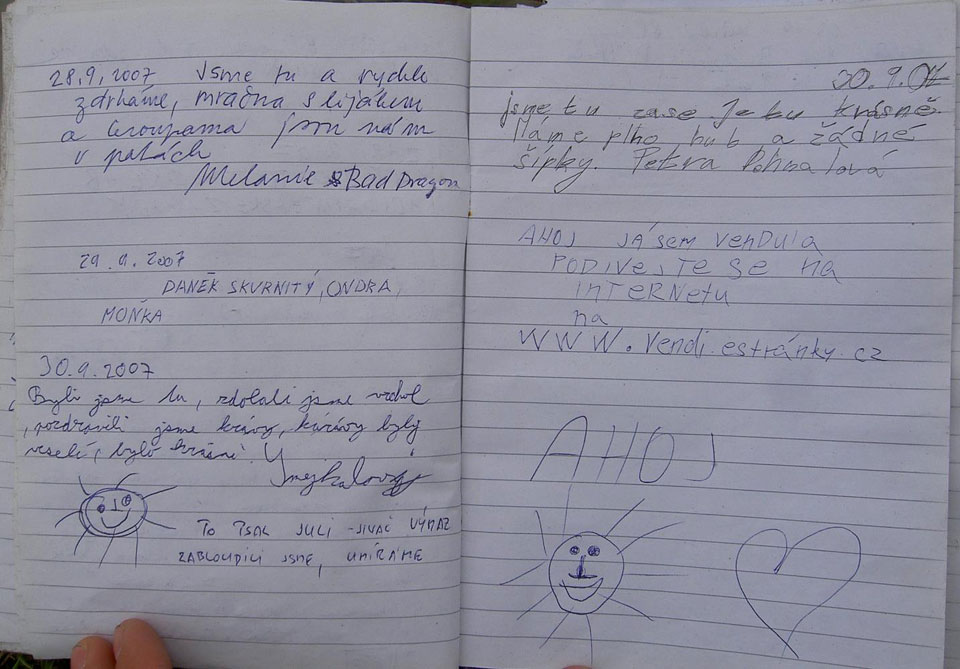 28.9.2007 Jsme tu a rychle
zdrháme, mračna s lijákem
a Groupama jsou nám
v patách
Melanie & Bad Dragon
29.9.2007
DANĚK SKVRNITÝ, ONDRA,
MOŇKA
30.9.2007
Byli jsme tu, zdolali jsme vrchol
, pozdravili jsme krávy, krávy byly
veselé, bylo krásně!
Smejkalovi
TO PSAL JULI
ZABLOUDILI JSME, UMÍRÁME
30.9.07
jsme tu zase Je tu krásně.
Máme plno hub a žádné
šipky. Petra Pohnalová
AHOJ JÁ SEM VENDULA
PODIVEJTE SE NA
INTERNETU
na
WWW.vendi.estránky.cz
AHOJ